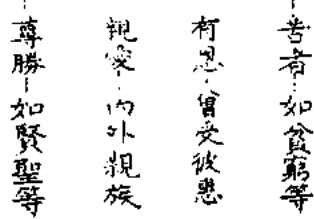 苦者…如貧窮等
有恩…曾受彼惠
親愛…內外親族
尊勝…如賢聖等